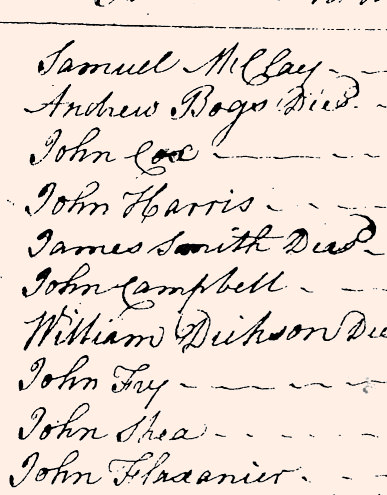 Samuel McClay - -
Andrew Bogs Died
John Cox - - - -
John Harris - - - -
James Smith Died -
John Campbell - -
William Dickson Die
John Fry - - - - -
John Shea - - - -
John Flaxanier - -